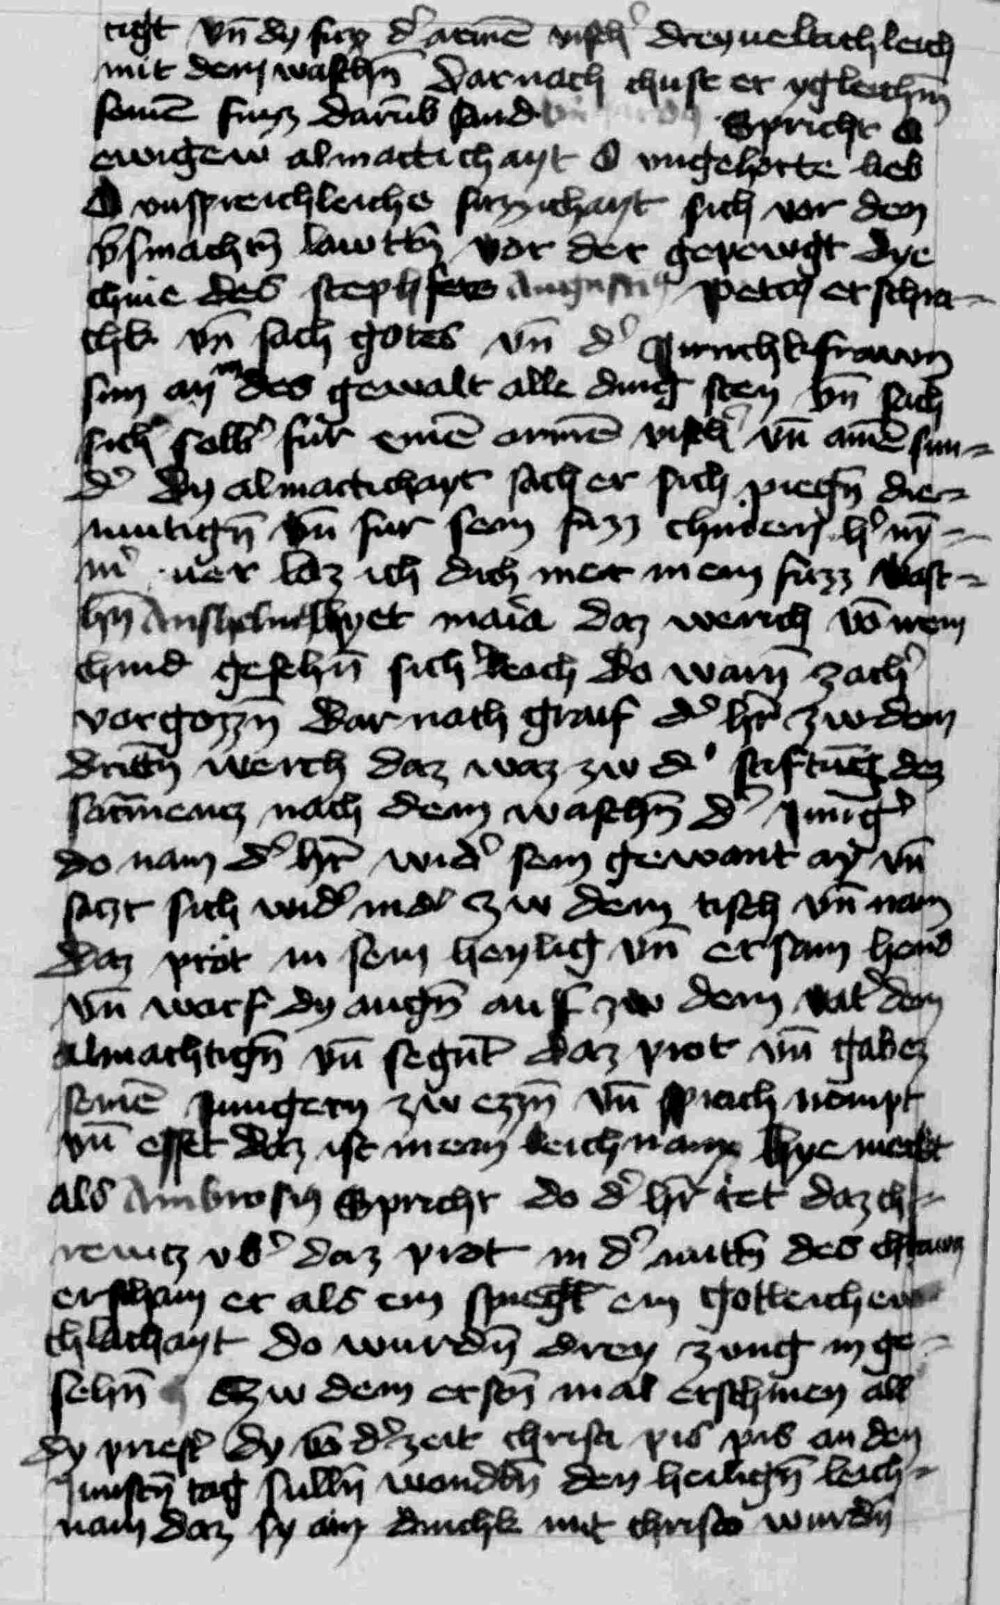 tigt vn̄ dy fuzz d' armē visch' dreyueltichleich
mit dem waschn̄ Darnach chust er ygleichm̄
seinē fuzz darūb sand Spricht O
ewigew almactichayt O vngehorte lieb
O vnspreichleiche suzzichayt sich vor den
v'smachtn̄ lawttn̄ vor der gepewgt dye
chnie des stephfers Augustin9 Peter erschra-
chk vn̄ sach gotes vn̄ d' Junchkfrawn
sun an des gewalt alle ding sten vn̄ sach
sich selb' für einē armē visch' vn̄ amē sun-
d' dy almactichayt sach er sich piegn̄ dier-
mutign̄ vn̄ fur sein fuzz chnieen h' ny-
m' mer laz ich dich mer mein fuzz wasc-
hn̄ Anshelm9 hyet maria daz werich vō irem
chind gesehn̄ sich'leich do warn̄ zach'
vorgozzn̄ Darnach graif d' hr̄ zw dem
drittn̄ werch daz waz zw d' stiftūg dez
sacm̄entz nach dem waschn̄ d' Jung'
do nam d' hr̄ wid' sein gewant an vn̄
satzt sich wid' nid' zw dem tisch vn̄ nam
daz prot in sein heylig vn̄ ersam hend
vn̄ warf dy augn̄ auf zw dem vat' dem
almachtign̄ vn̄ segnt daz prot vn̄ gabez
seinē Jungern zw ezzn̄ vn̄ sprach nempt
vn̄ esset daz ist mein leichnam hye merkt
als Ambrosi9 Spricht do d' hr̄ tet daz ch-
rewtz vb' daz prot in d' mittn̄ des
erscham er als ein spiegl ein gotleicher
chlachayt do wurdn̄ drey zung in ge-
sehn̄ Zw dem erstn̄ mal erschinen all
dy priest' dy vō d' zeit christi pis pis an den
Junstn̄ tag sulln̄ wandln̄ den heilign̄ leich-
nam daz sy ain dinchk mit christo wurdn̄